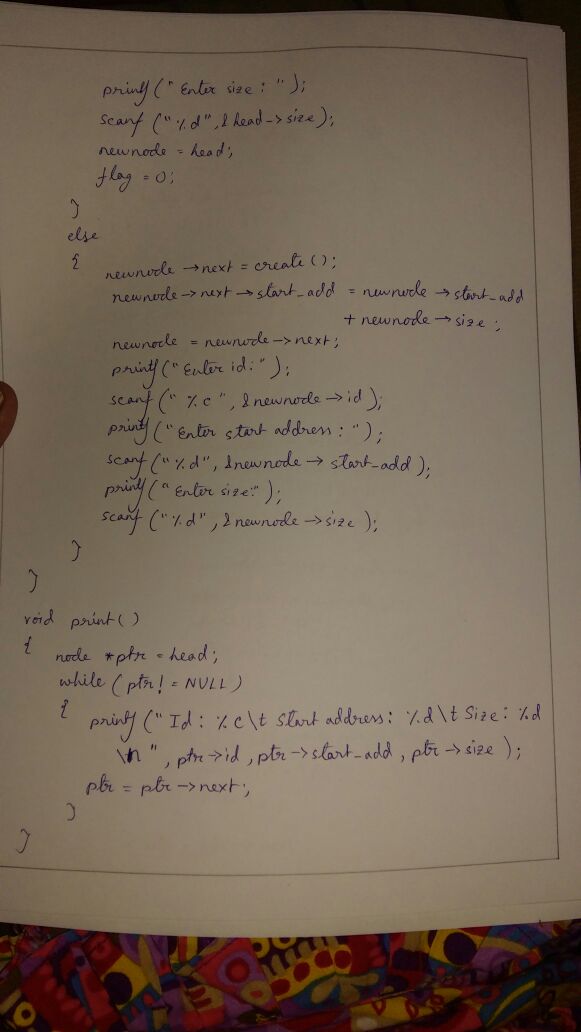 printf(" Enter size : ");
scanf ("%d", &head->size);
newnode = head;
flag = 0;
}
else
{
newnode ->next = create ();
newnode -> next -> start_add = newnode -> start_add
+ newnode -> size ;
newnode = newnode -> next;
printf(" Enter id: ");
scanf (" %c ", &newnode -> id );
printf ("Enter start address : ");
scanf ("%d", &newnode -> start_add );
printf (" Enter size:" );
scanf ("%d", &newnode -> size );
}
}
void print ( )
{
node *ptr = head;
while ( ptr != NULL )
{
printf (" Id : %c \t Start address: %d \t Size : %d
\n ", ptr->id , ptr -> start_add , ptr -> size );
ptr = ptr -> next ;
}
}